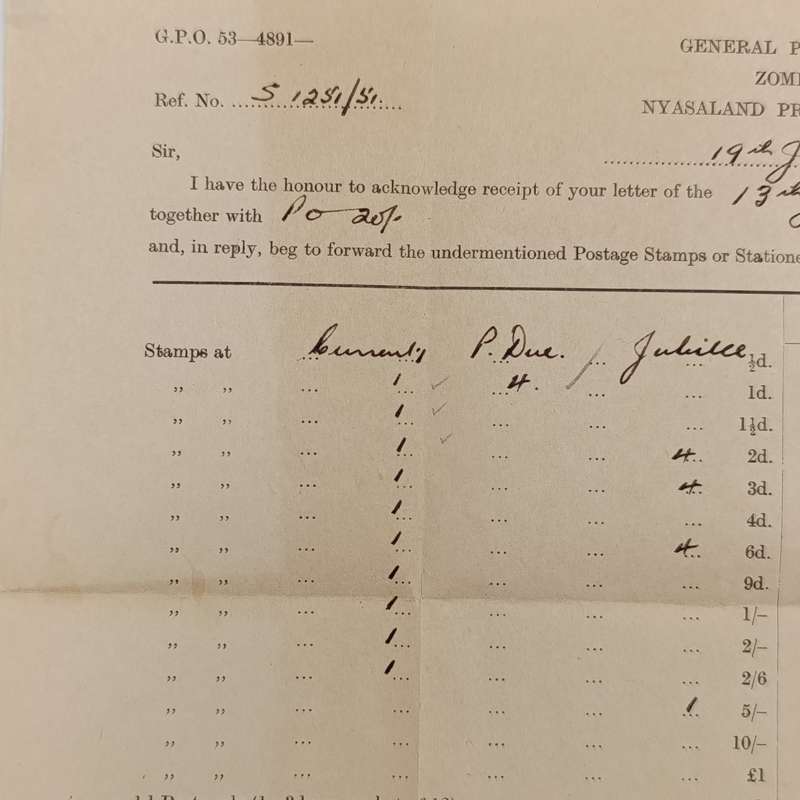 G.P.O. 53—4891—
GENERAL P
ZOM
Ref. No. S 1251/51
NYASALAND PR
Sir,
19th J
I have the honour to acknowledge receipt of your letter of the 13th
together with PO 20/-
and, in reply, beg to forward the undermentioned Postage Stamps or Statione
Stamps at Currently P. Due. / ... Jubilee ½d.
„ „ ... 1 ✓ ... 4. ... ... 1d.
„ „ ... 1 ✓ ... ... ... 1½d.
„ „ ... 1 ✓ ... ... 4 2d.
„ „ ... 1 ... ... 4 3d.
„ „ ... 1 ... ... ... 4d.
„ „ ... 1 ... ... 4 6d.
„ „ ... 1 ... ... ... 9d.
„ „ ... 1 ... ... ... 1/–
„ „ ... 1 ... ... ... 2/–
„ „ ... 1 ... ... ... 2/6
„ „ ... ... ... ... 1 5/–
„ „ ... ... ... ... ... 10/–
„ „ ... ... ... ... ... £1